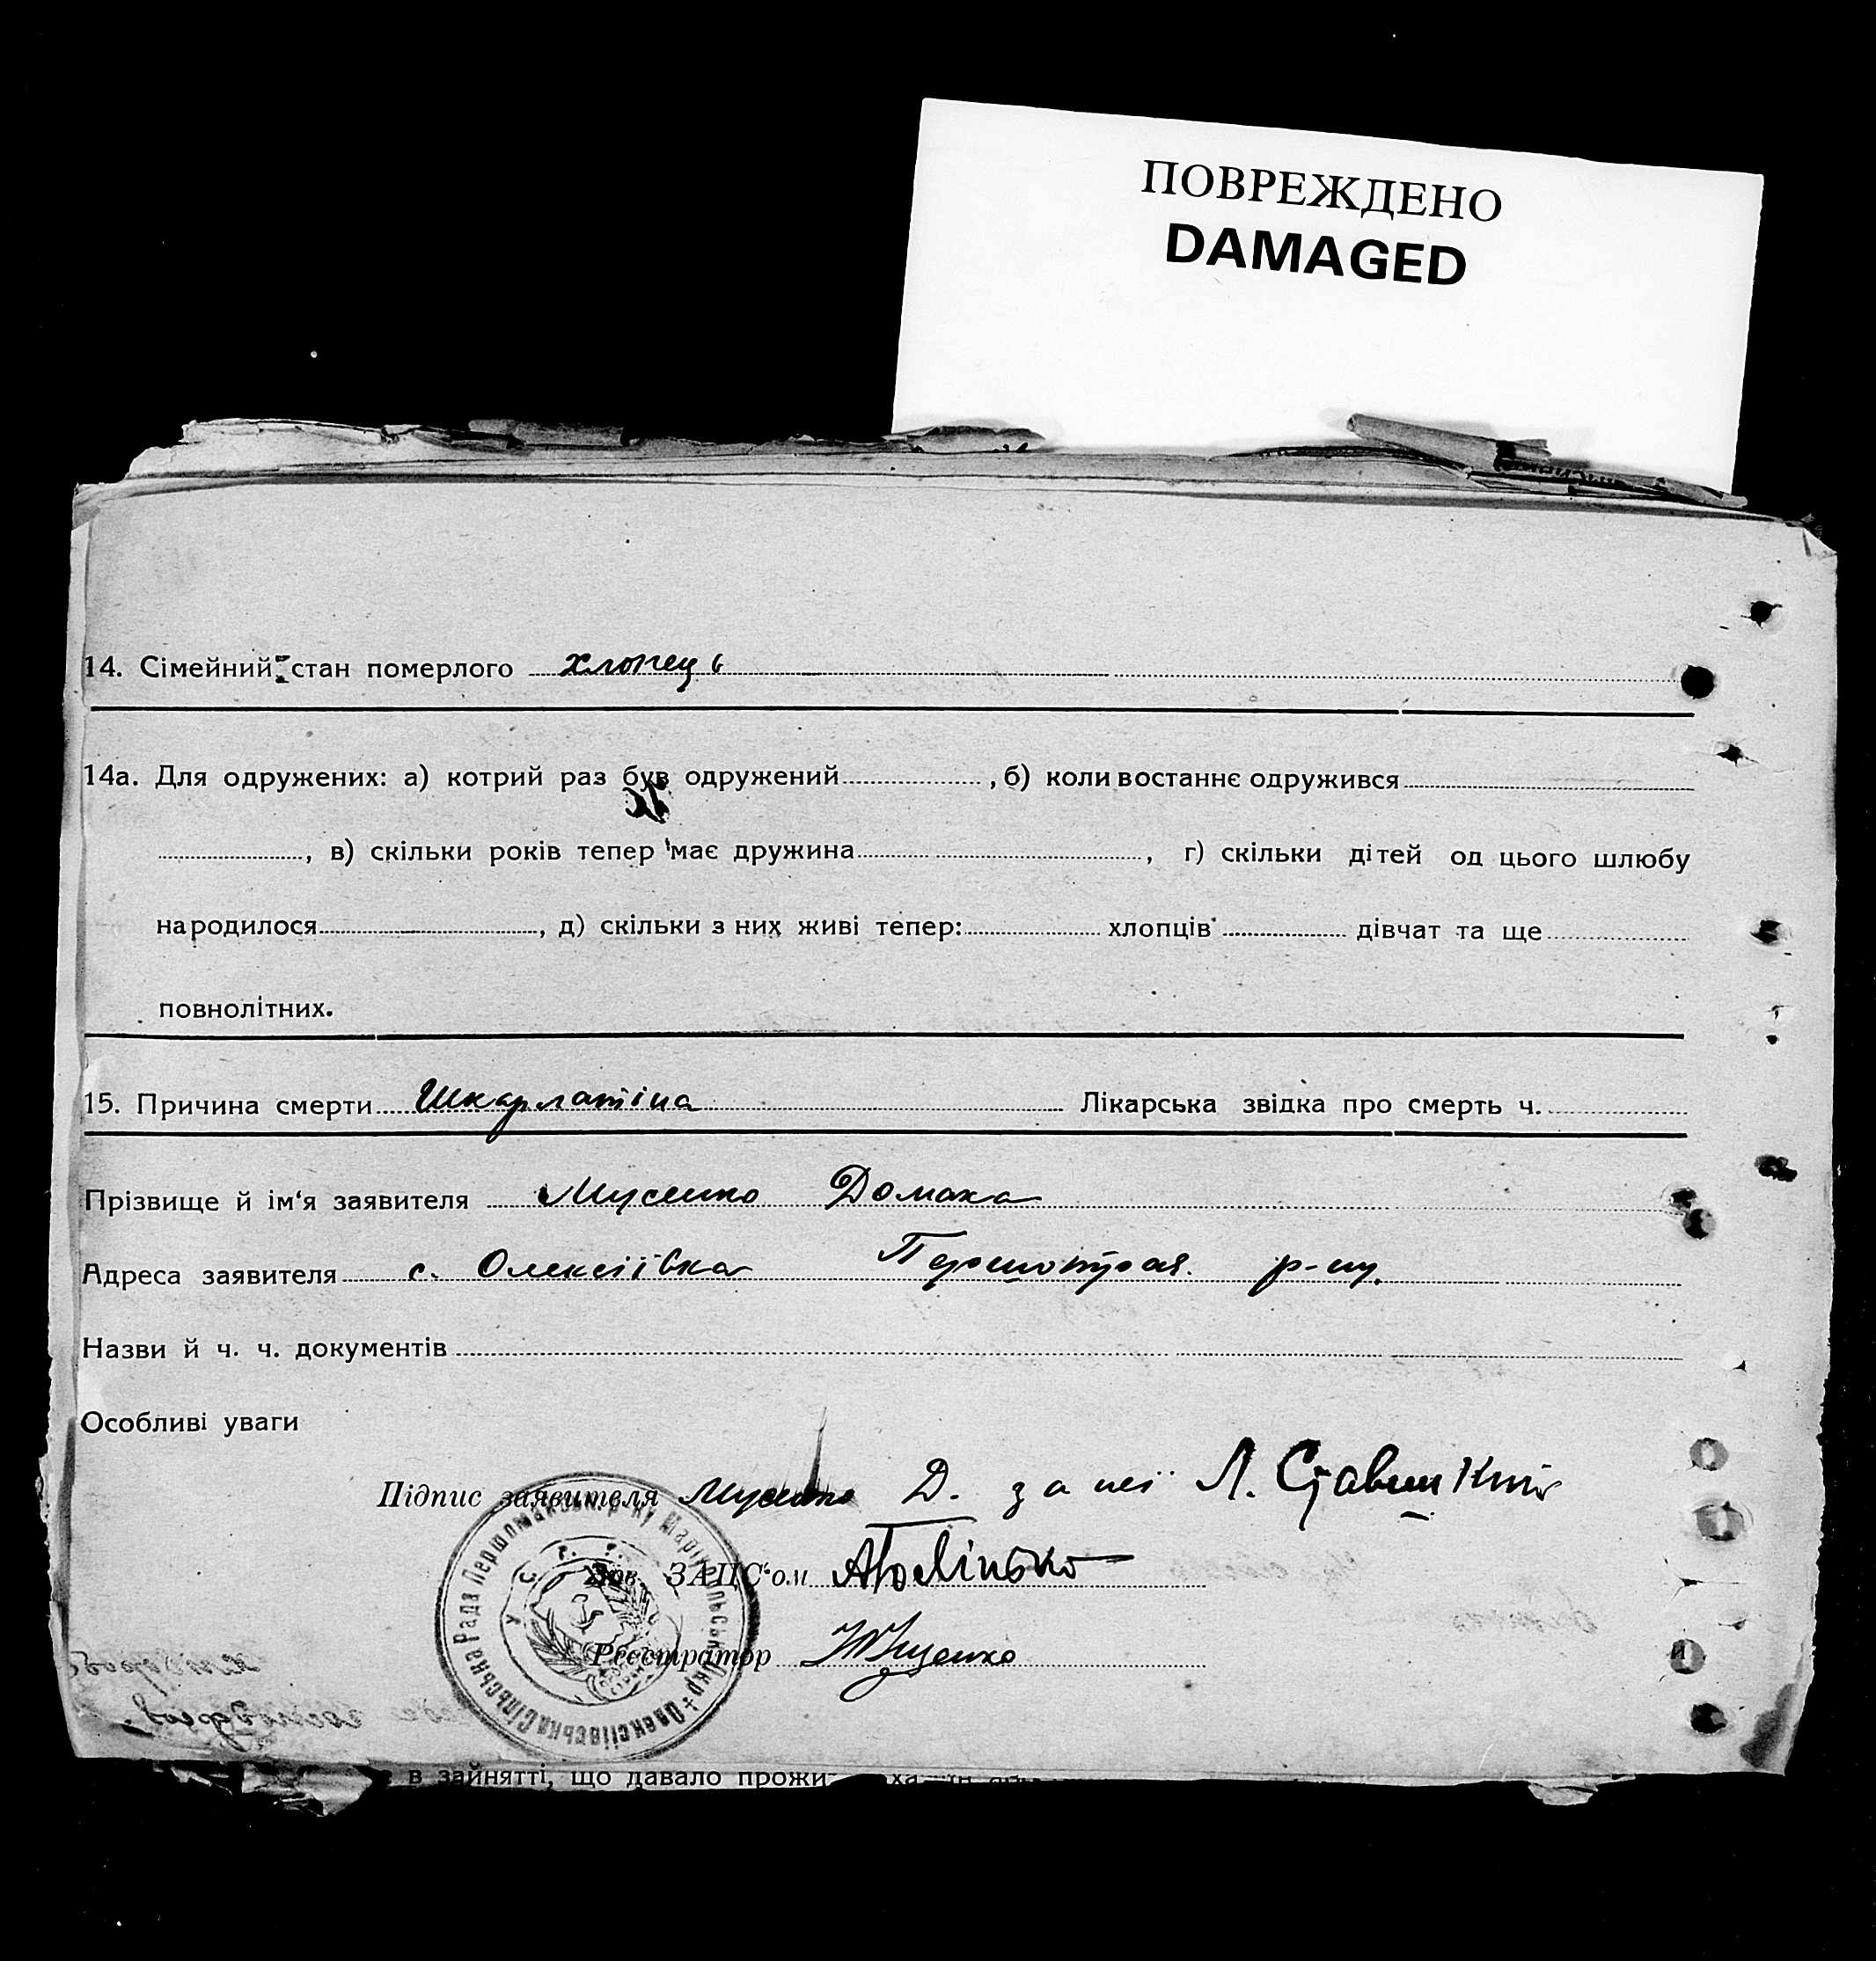 ПОВРЕЖДЕНО
DAMAGED
14. Сімейний стан померлого хлопець
14а. Для одружених: а) котрий раз був одружений , б) коли востаннє одружився
, в) скільки років тепер має дружина , г) скільки дітей од цього шлюбу
народилося , д) скільки з них живі тепер: хлопців дівчат та ще
повнолітних.
15. Причина смерти Шкарлатіна Лікарська звідка про смерть ч.
Прізвище й ім'я заявителя Мусенко Домаха
Адреса заявителя с. Олексіївка р-ну.
Назви й ч. ч. документів
Особливі уваги
Підпис заявителя Мусенко Д. за неї Л.
Зав. ЗАГС'ом
Реєстратор
Олексіївська Сільська Рада Першомайськ. р-ку Маріупольськ. Окр.
У. С. Р. Р.
в зайнятті, що давало прожи